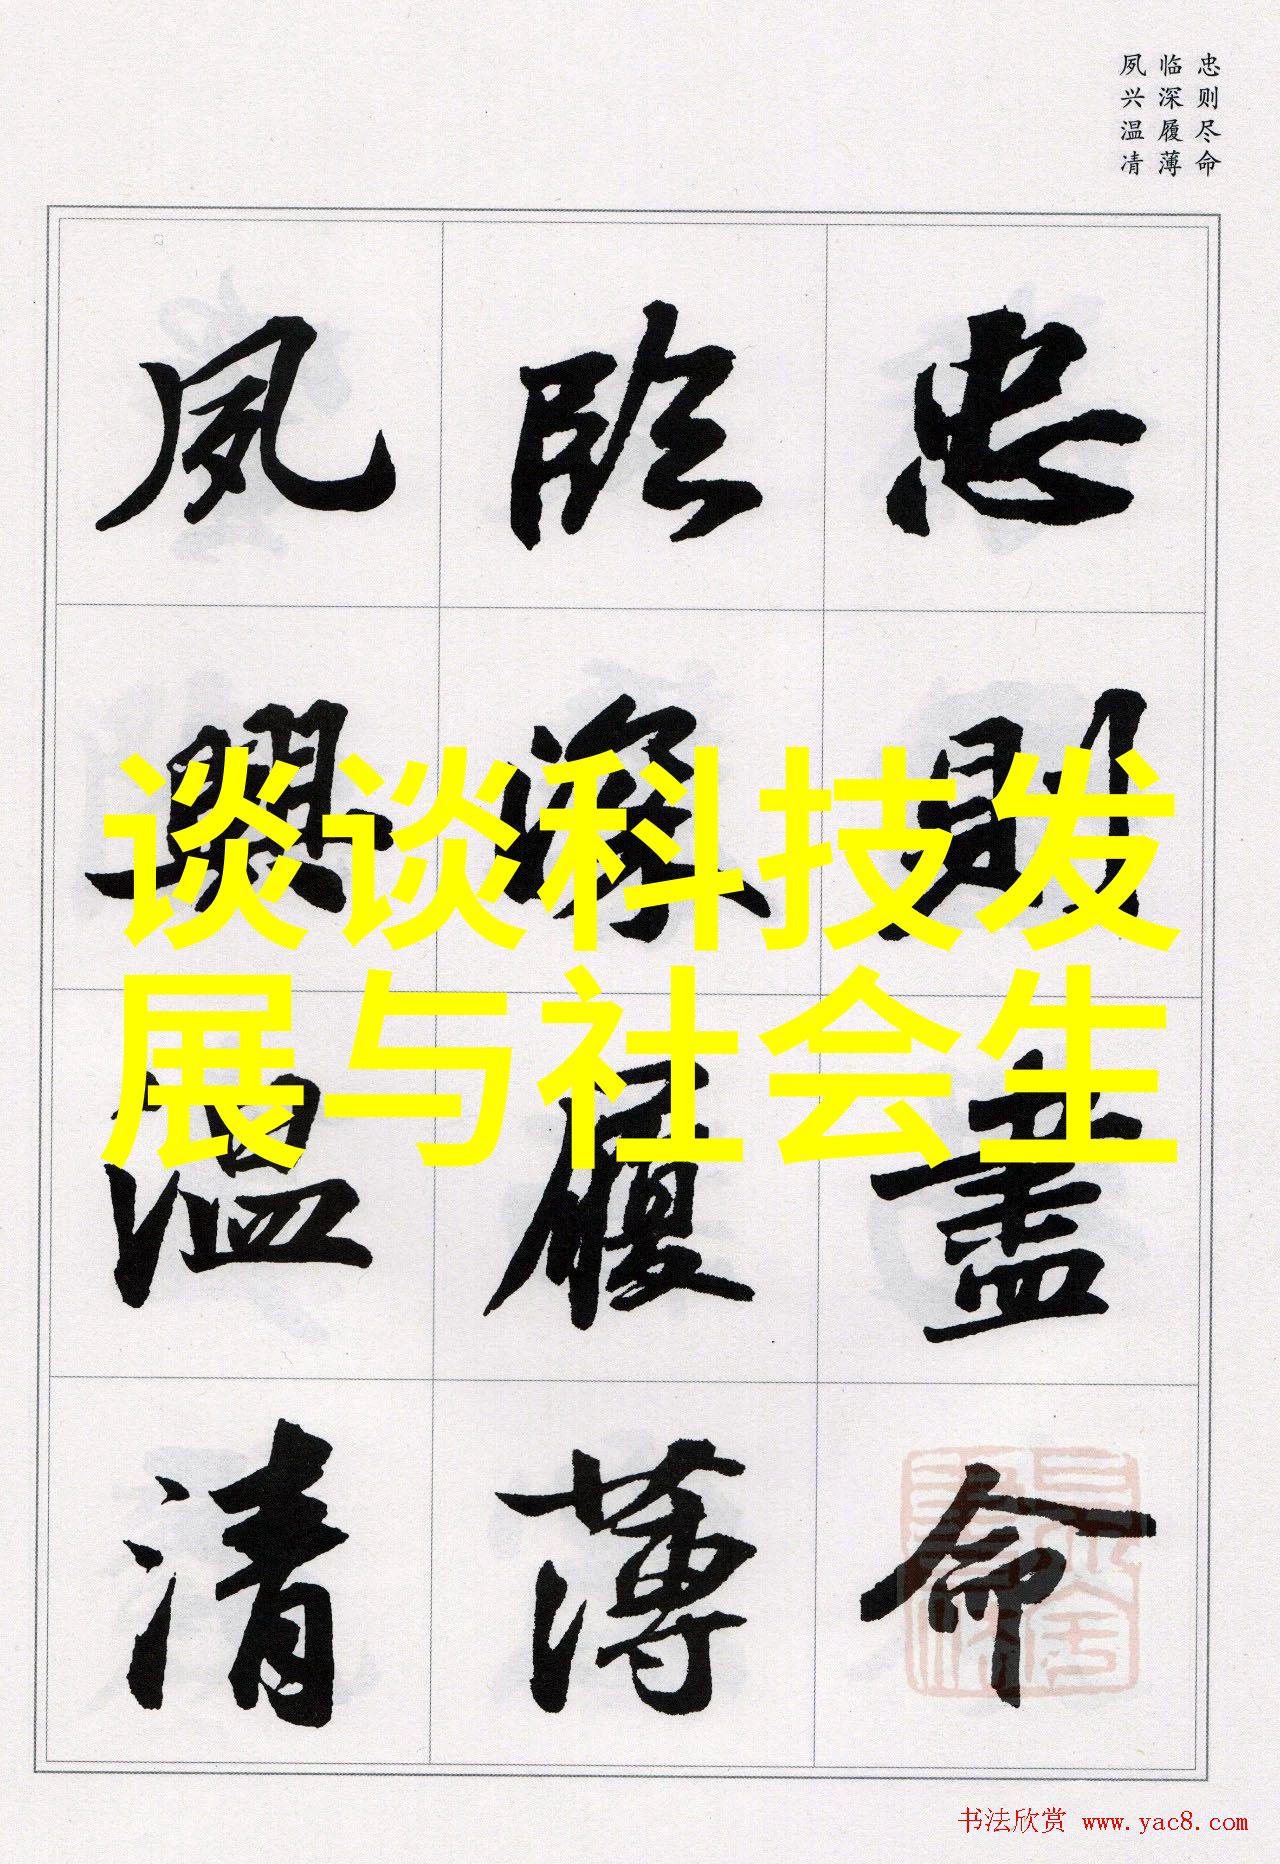 忠则尽命
临深履薄
夙兴温凊
忠则尽命
临深履薄
夙兴温清
谈谈科技发
展与社会生
书法欣赏 www.yac8.com